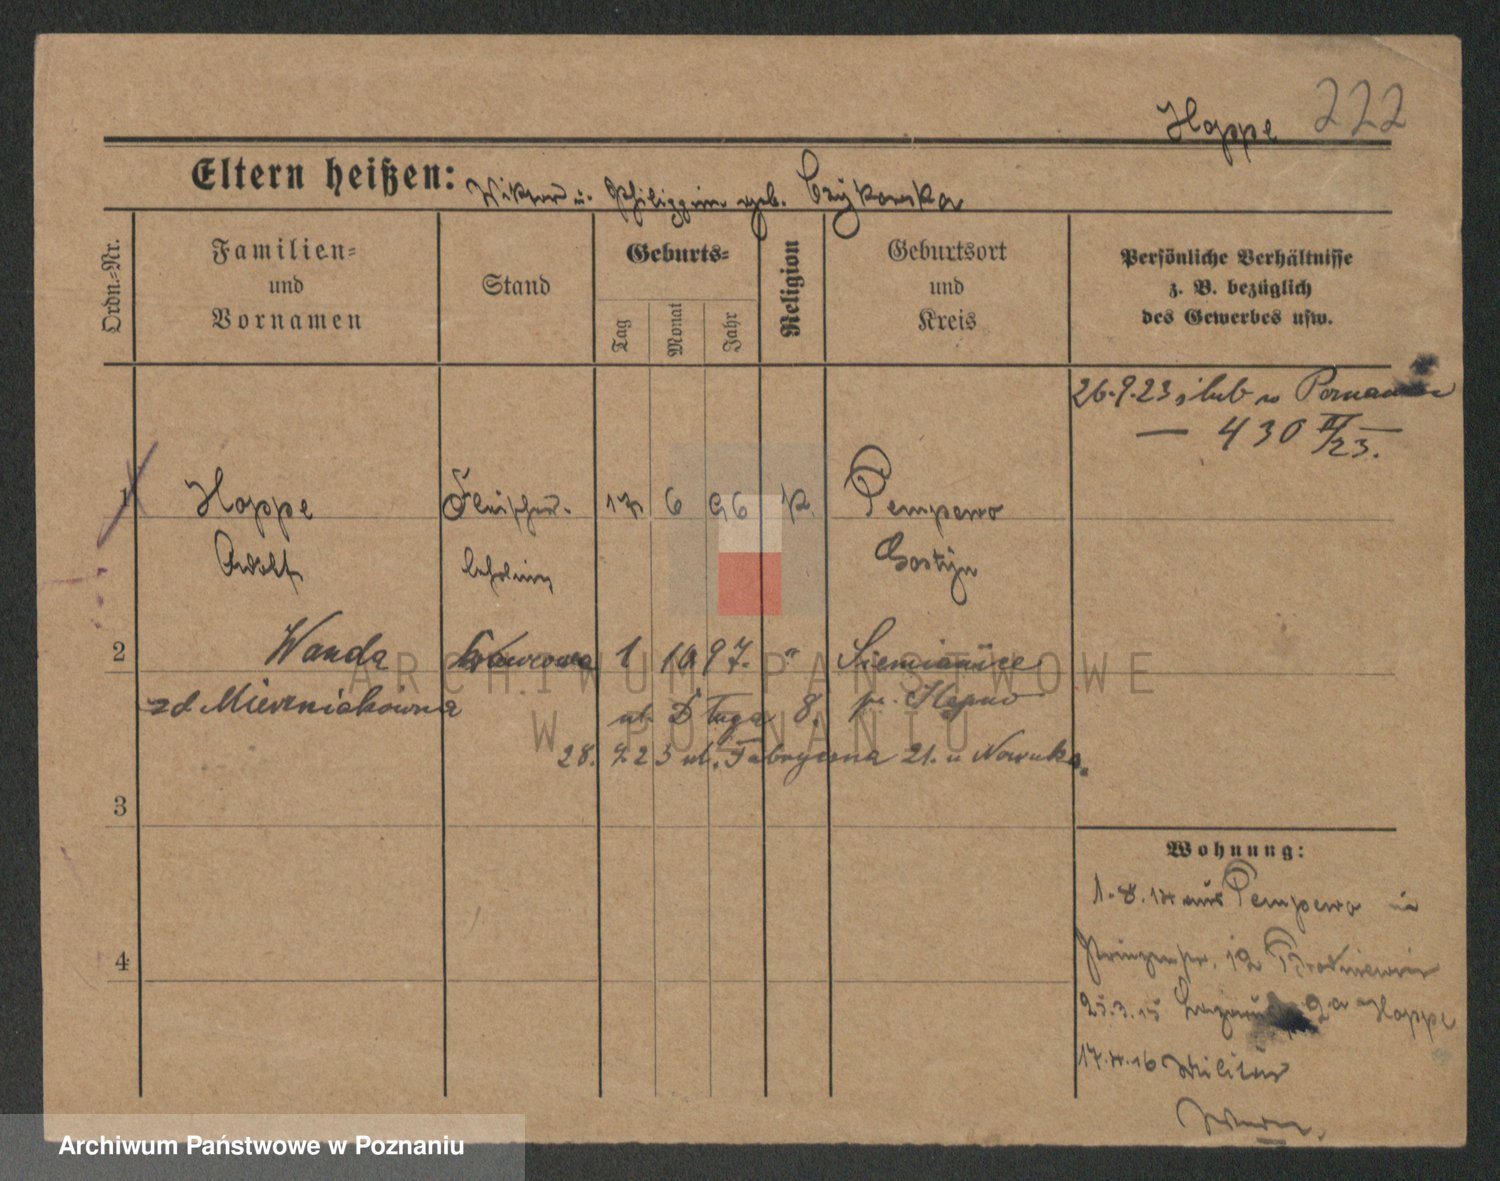 Hoppe 222
Eltern heißen: Wiktor u. Philippine geb. Czykowska
Ordn.=Nr.
Familien=
und
Vornamen
Stand
Geburts=
Tag
Monat
Jahr
Religion
Geburtsort
und
Kreis
Persönliche Verhältnisse
z. B. bezüglich
des Gewerbes usw.
26.9.23 ślub w
— 430 II/23. —
1 Hoppe Fleischer- 17 6 96 k. Pempowo
Adolf lehrling Gostyn
2 Wanda 1 10 97. " Siemianice
zd Mierniakówna ul. Długa 8. p. Kępno
28. 9 23 ul. Fabryczna 21. u Nowaka.
3
4
Wohnung:
1.8.14 aus Pempowo in
12
25.3.15 2a Hoppe
Militär
ARCHIWUM PAŃSTWOWE
W POZNANIU
Archiwum Państwowe w Poznaniu